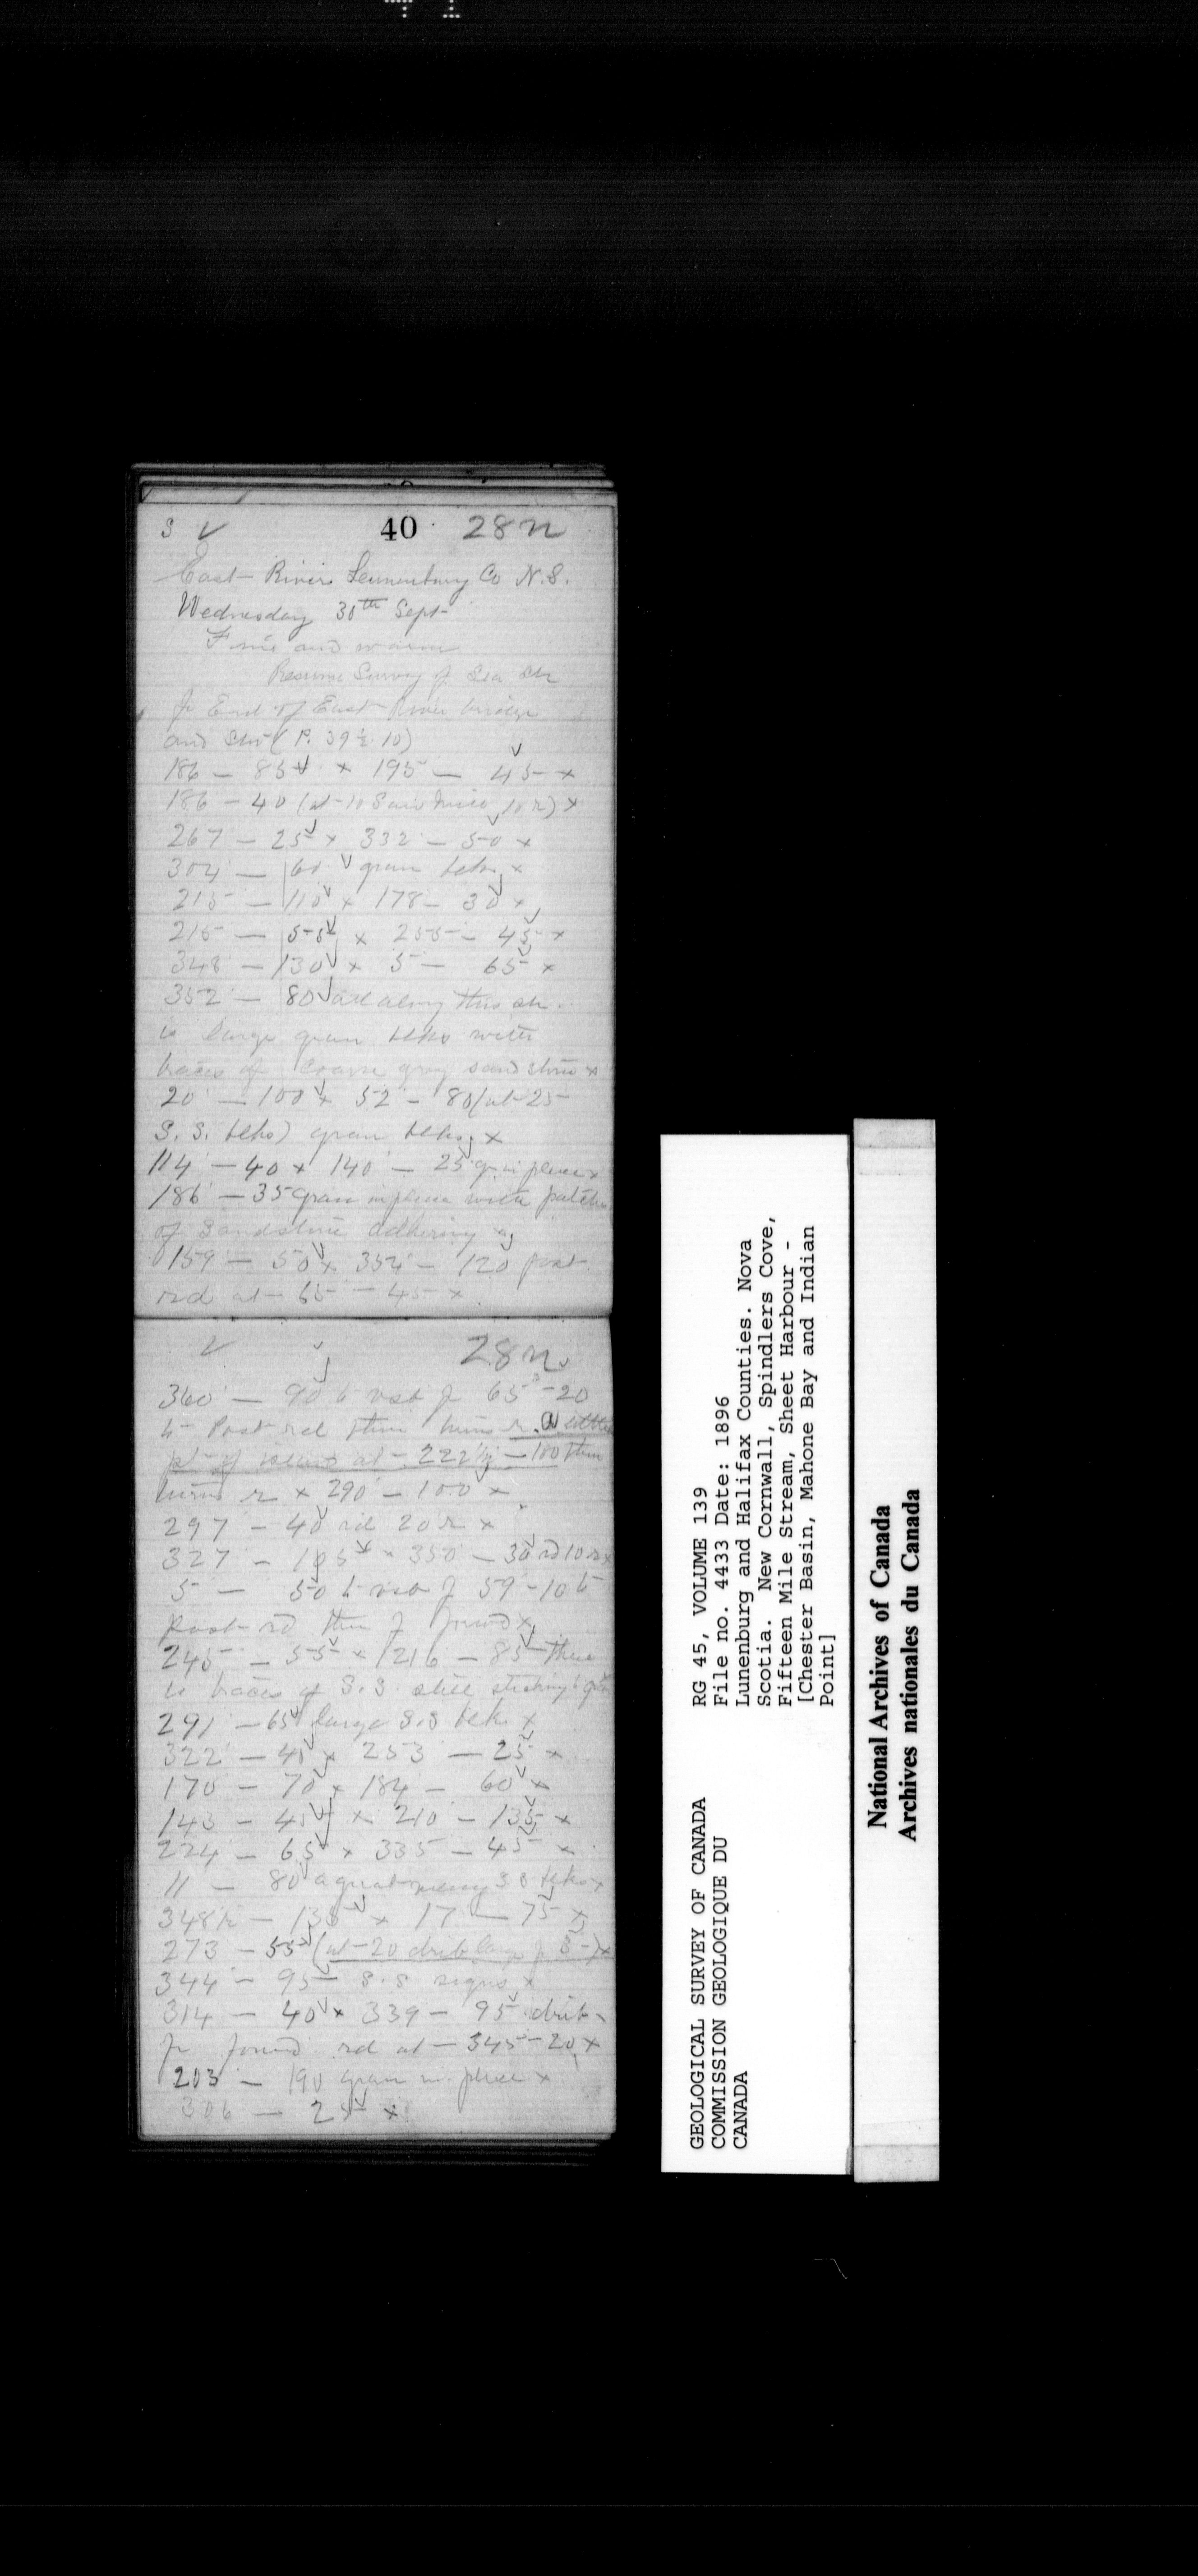 3 ✓ 40 28 n
East River Lunenburg Co N.S.
Wednesday 30th Sept
Fine and warm
Resume Survey of Sea Sh
fr End of East River bridge
and Stn (P. 39 ½ 10)
186 – 85 × 195 – 45 ×
186 – 40 (at 10 Saw Mill 10 r) ×
267 – 25 × 332 – 50 ×
304 – 60 gran blks ×
215 – 110 × 178 – 30 ×
215 – 55 × 255 – 45 ×
348 – 130 × 5 – 65 ×
352 – 80 all along this sh.
is large gran blks with
traces of coarse gray sandstone ×
20 – 100 × 52 – 80 (at 25
S.S. blks) gran blks ×
114 – 40 × 140 – 25 gr in place ×
186 – 35 gran in place with patches
of Sandstone adhering ×
159 – 50 × 352 – 120 post
rd at 65 – 45 ×
✓ 28 n
360 – 90 b vst f 65 – 20
to Post rd then turns r. a little
pt of island at – 222½ – 100 then
turns r × 290 – 100 ×
297 – 40 rd 20 r ×
327 – 105 × 350 – 30 rd 10 r ×
5 – 50 b vst f 59 – 10 to
Post rd then f ×
245 – 55 × 216 – 85 there
is traces of S.S. still sticking
291 – 65 large S.S blk ×
322 – 45 × 253 – 25 ×
170 – 70 × 184 – 60 ×
143 – 45 × 210 – 135 ×
224 – 65 × 335 – 45 ×
11 – 80 a great many S S blks ×
348½ – 135 × 17 – 75 ×
273 – 55 (at 20
344 – 95 S.S signs ×
314 – 40 × 339 – 95
rd at – 345 – 20 ×
203 – 190 gran in place ×
306 – 25 ×
GEOLOGICAL SURVEY OF CANADA
COMMISSION GEOLOGIQUE DU
CANADA
RG 45, VOLUME 139
File no. 4433 Date: 1896
Lunenburg and Halifax Counties. Nova
Scotia. New Cornwall, Spindlers Cove,
Fifteen Mile Stream, Sheet Harbour -
[Chester Basin, Mahone Bay and Indian
Point]
National Archives of Canada
Archives nationales du Canada